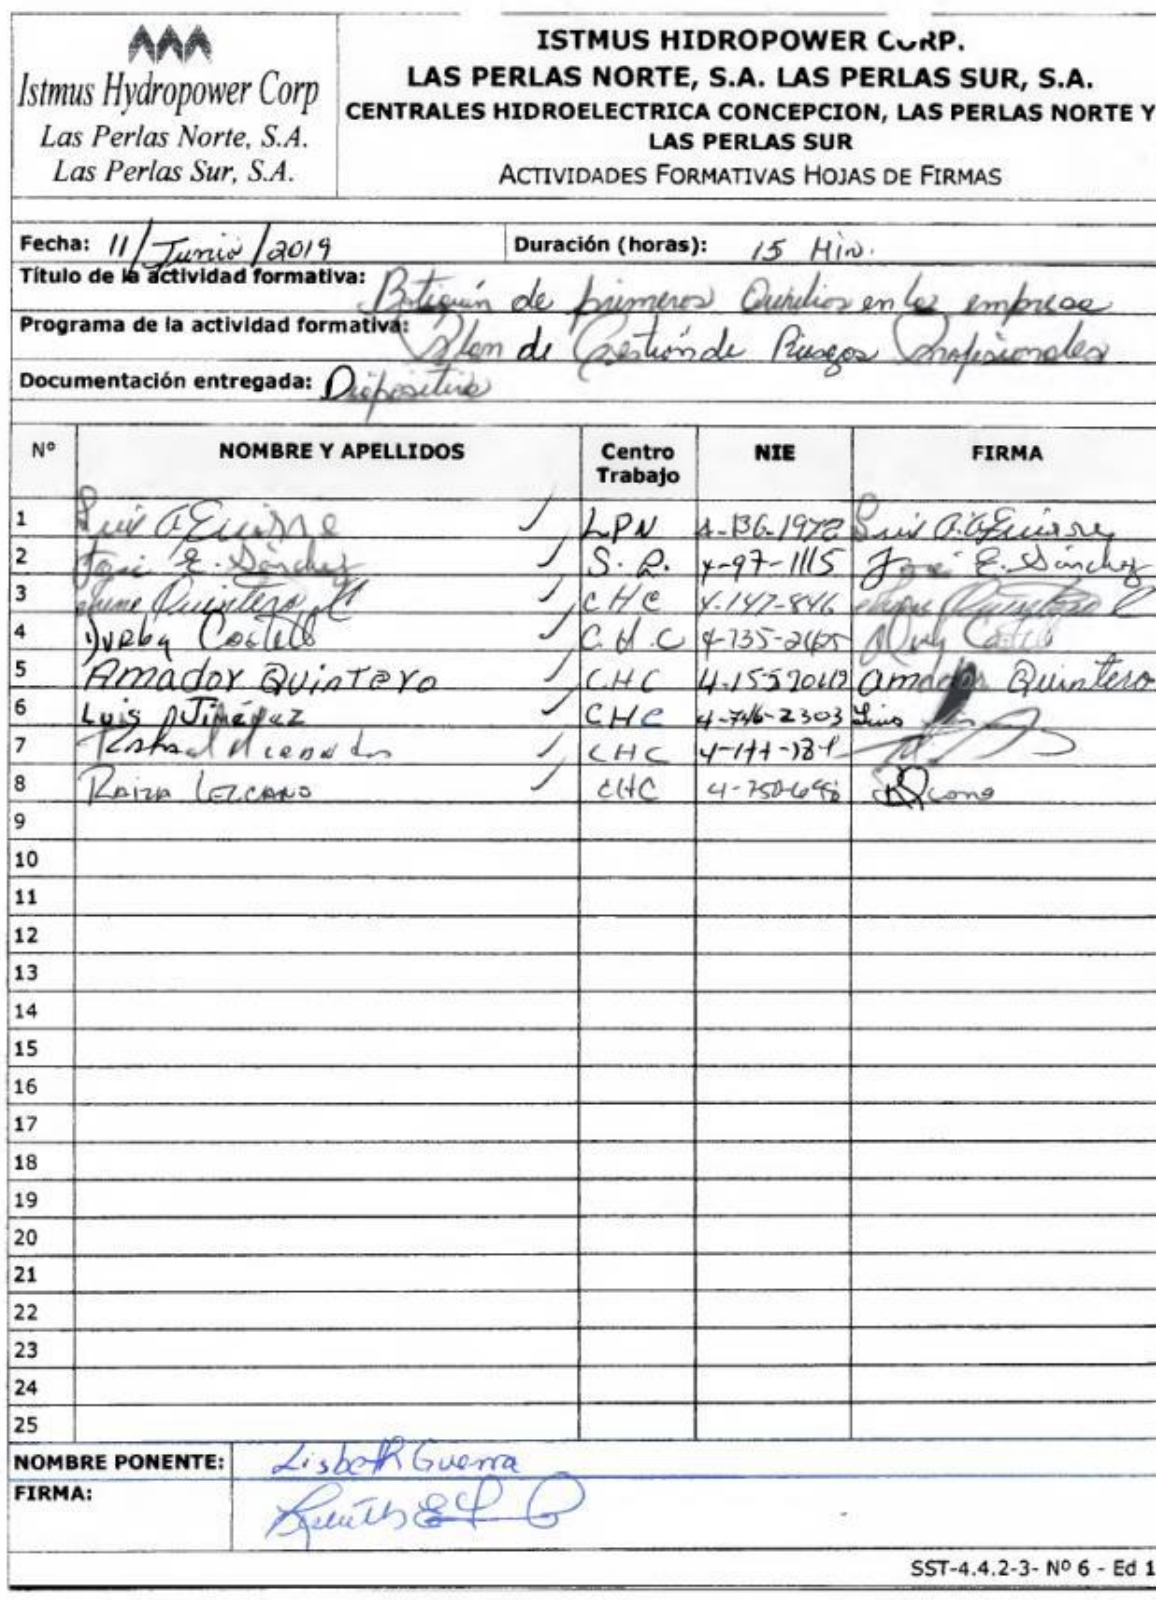 Istmus Hydropower Corp
Las Perlas Norte, S.A.
Las Perlas Sur, S.A.
ISTMUS HIDROPOWER CORP.
LAS PERLAS NORTE, S.A. LAS PERLAS SUR, S.A.
CENTRALES HIDROELECTRICA CONCEPCION, LAS PERLAS NORTE Y
LAS PERLAS SUR
ACTIVIDADES FORMATIVAS HOJAS DE FIRMAS
Fecha: 11/Junio/2019 Duración (horas): 15 Min.
Título de la actividad formativa: Botiquín de primeros Auxilios en la empresa
Programa de la actividad formativa: Plan de Gestión de Riesgos Profesionales
Documentación entregada: Diapositiva
Nº NOMBRE Y APELLIDOS Centro Trabajo NIE FIRMA
1 Luis A. Guirre LPN 4-136-1972 Luis A. Aguirre
2 José E. Sánchez S.R. 4-97-1115 José E. Sánchez
3 Quintero CHC 4-147-846 Quintero
4 Castillo C.H.C
5 Amador Quintero CHC Amador Quintero
6 Luis Jiménez CHC 4-746-2303 Luis
7 CHC
8 Raiza Lezcano CHC
9
10
11
12
13
14
15
16
17
18
19
20
21
22
23
24
25
NOMBRE PONENTE: Lisbeth Guerra
FIRMA:
SST-4.4.2-3- Nº 6 - Ed 1